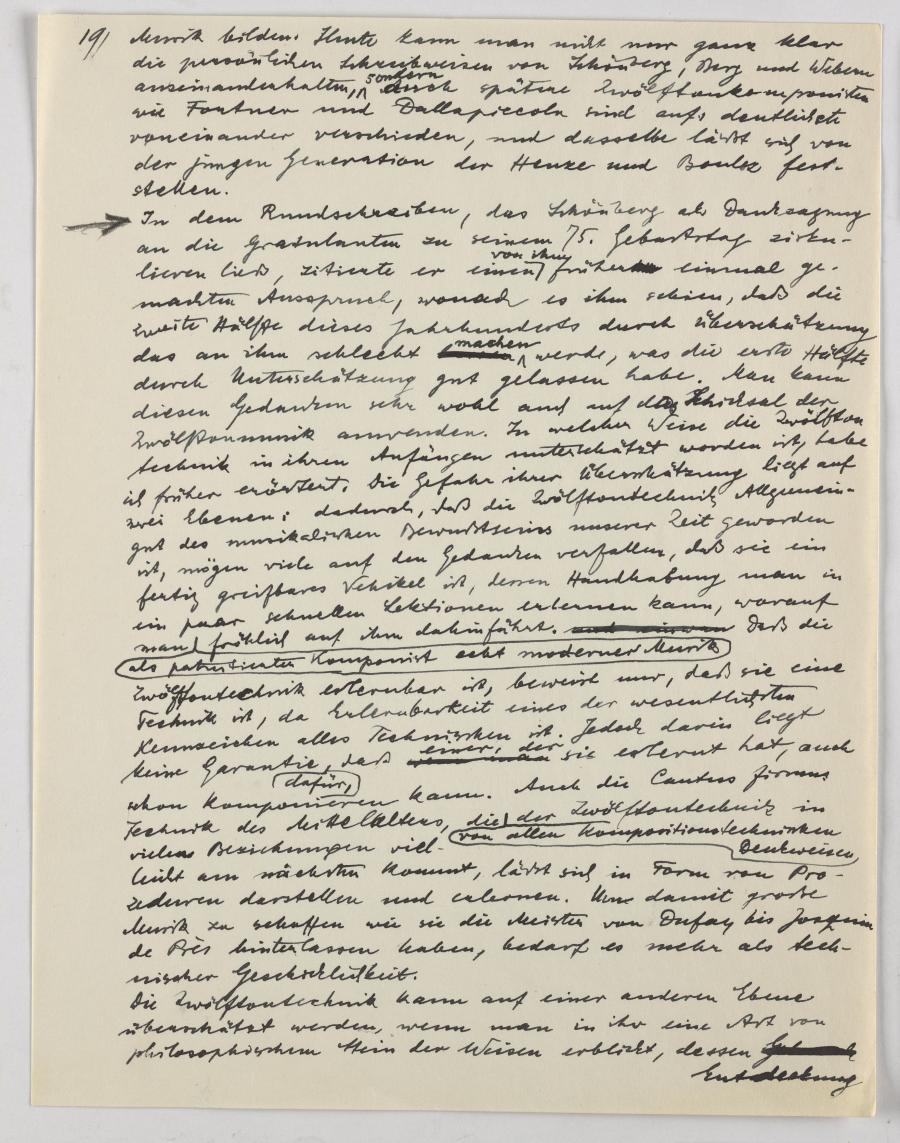 19/ Musik bilden. Heute kann man nicht nur ganz klar
die persönlichen Schreibweisen von Schönberg, Berg und Webern
auseinanderhalten, sondern auch spätere Zwölftonkomponisten
wie Fortner und Dallapiccola sind aufs deutlichste
voneinander verschieden, und dasselbe läßt sich von
der jungen Generation der Henze und Boulez fest-
stellen.
In dem Rundschreiben, das Schönberg als Danksagung
an die Gratulanten zu seinem 75. Geburtstag zirku-
lieren ließ, zitierte er einen von ihm früher einmal ge-
machten Ausspruch, wonach es ihm schien, daß die
zweite Hälfte dieses Jahrhunderts durch Überschätzung
das an ihm schlecht machen werde, was die erste Hälfte
durch Unterschätzung gut gelassen habe. Man kann
diesen Gedanken sehr wohl auch auf das Schicksal der
Zwölftonmusik anwenden. In welcher Weise die Zwölfton
technik in ihren Anfängen unterschätzt worden ist, habe
ich früher erörtert. Die Gefahr ihrer Überschätzung liegt auf
zwei Ebenen: dadurch, daß die Zwölftontechnik Allgemein-
gut des musikalischen Bewußtseins unserer Zeit geworden
ist, mögen viele auf den Gedanken verfallen, daß sie ein
fertig greifbares Vehikel ist, dessen Handhabung man in
ein paar schnellen Lektionen erlernen kann, worauf
man fröhlich auf ihm dahinfährt. Daß die
als patentierter Komponist echt moderner Musik
Zwölftontechnik erlernbar ist, beweist nur, daß sie eine
Technik ist, da Erlernbarkeit eines der wesentlichsten
Kennzeichen alles Technischen ist. Jedoch darin liegt
keine Garantie, daß einer, der sie erlernt hat, auch
dafür,
schon komponieren kann. Auch die Cantus firmus
Technik des Mittelalters, die der Zwölftontechnik in
vielen Beziehungen viel- von allen kompositionstechnischen
Denkweisen
leicht am nächsten kommt, läßt sich in Form von Pro-
zeduren darstellen und erlernen. Um damit große
Musik zu schaffen wie sie die Meister von Dufay bis Josquin
de Près hinterlassen haben, bedarf es mehr als tech-
nischer Geschicklichkeit.
Die Zwölftontechnik kann auf einer anderen Ebene
überschätzt werden, wenn man in ihr eine Art von
philosophischem Stein der Weisen erblickt, dessen
Entdeckung